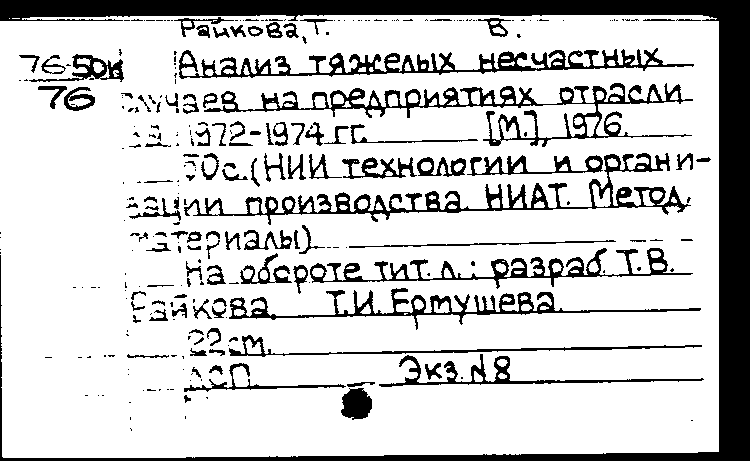 Райкова, Т. В.
76-50к Анализ тяжелых несчастных
76 случаев на предприятиях отрасли
за 1972-1974 гг. [М.], 1976.
50с. (НИИ технологии и органи-
зации производства. НИАТ. Метод.
материалы)
На обороте тит. л.: разраб. Т.В.
Райкова. Т.И. Ертушева.
22 см.
ДСП. Экз. № 8